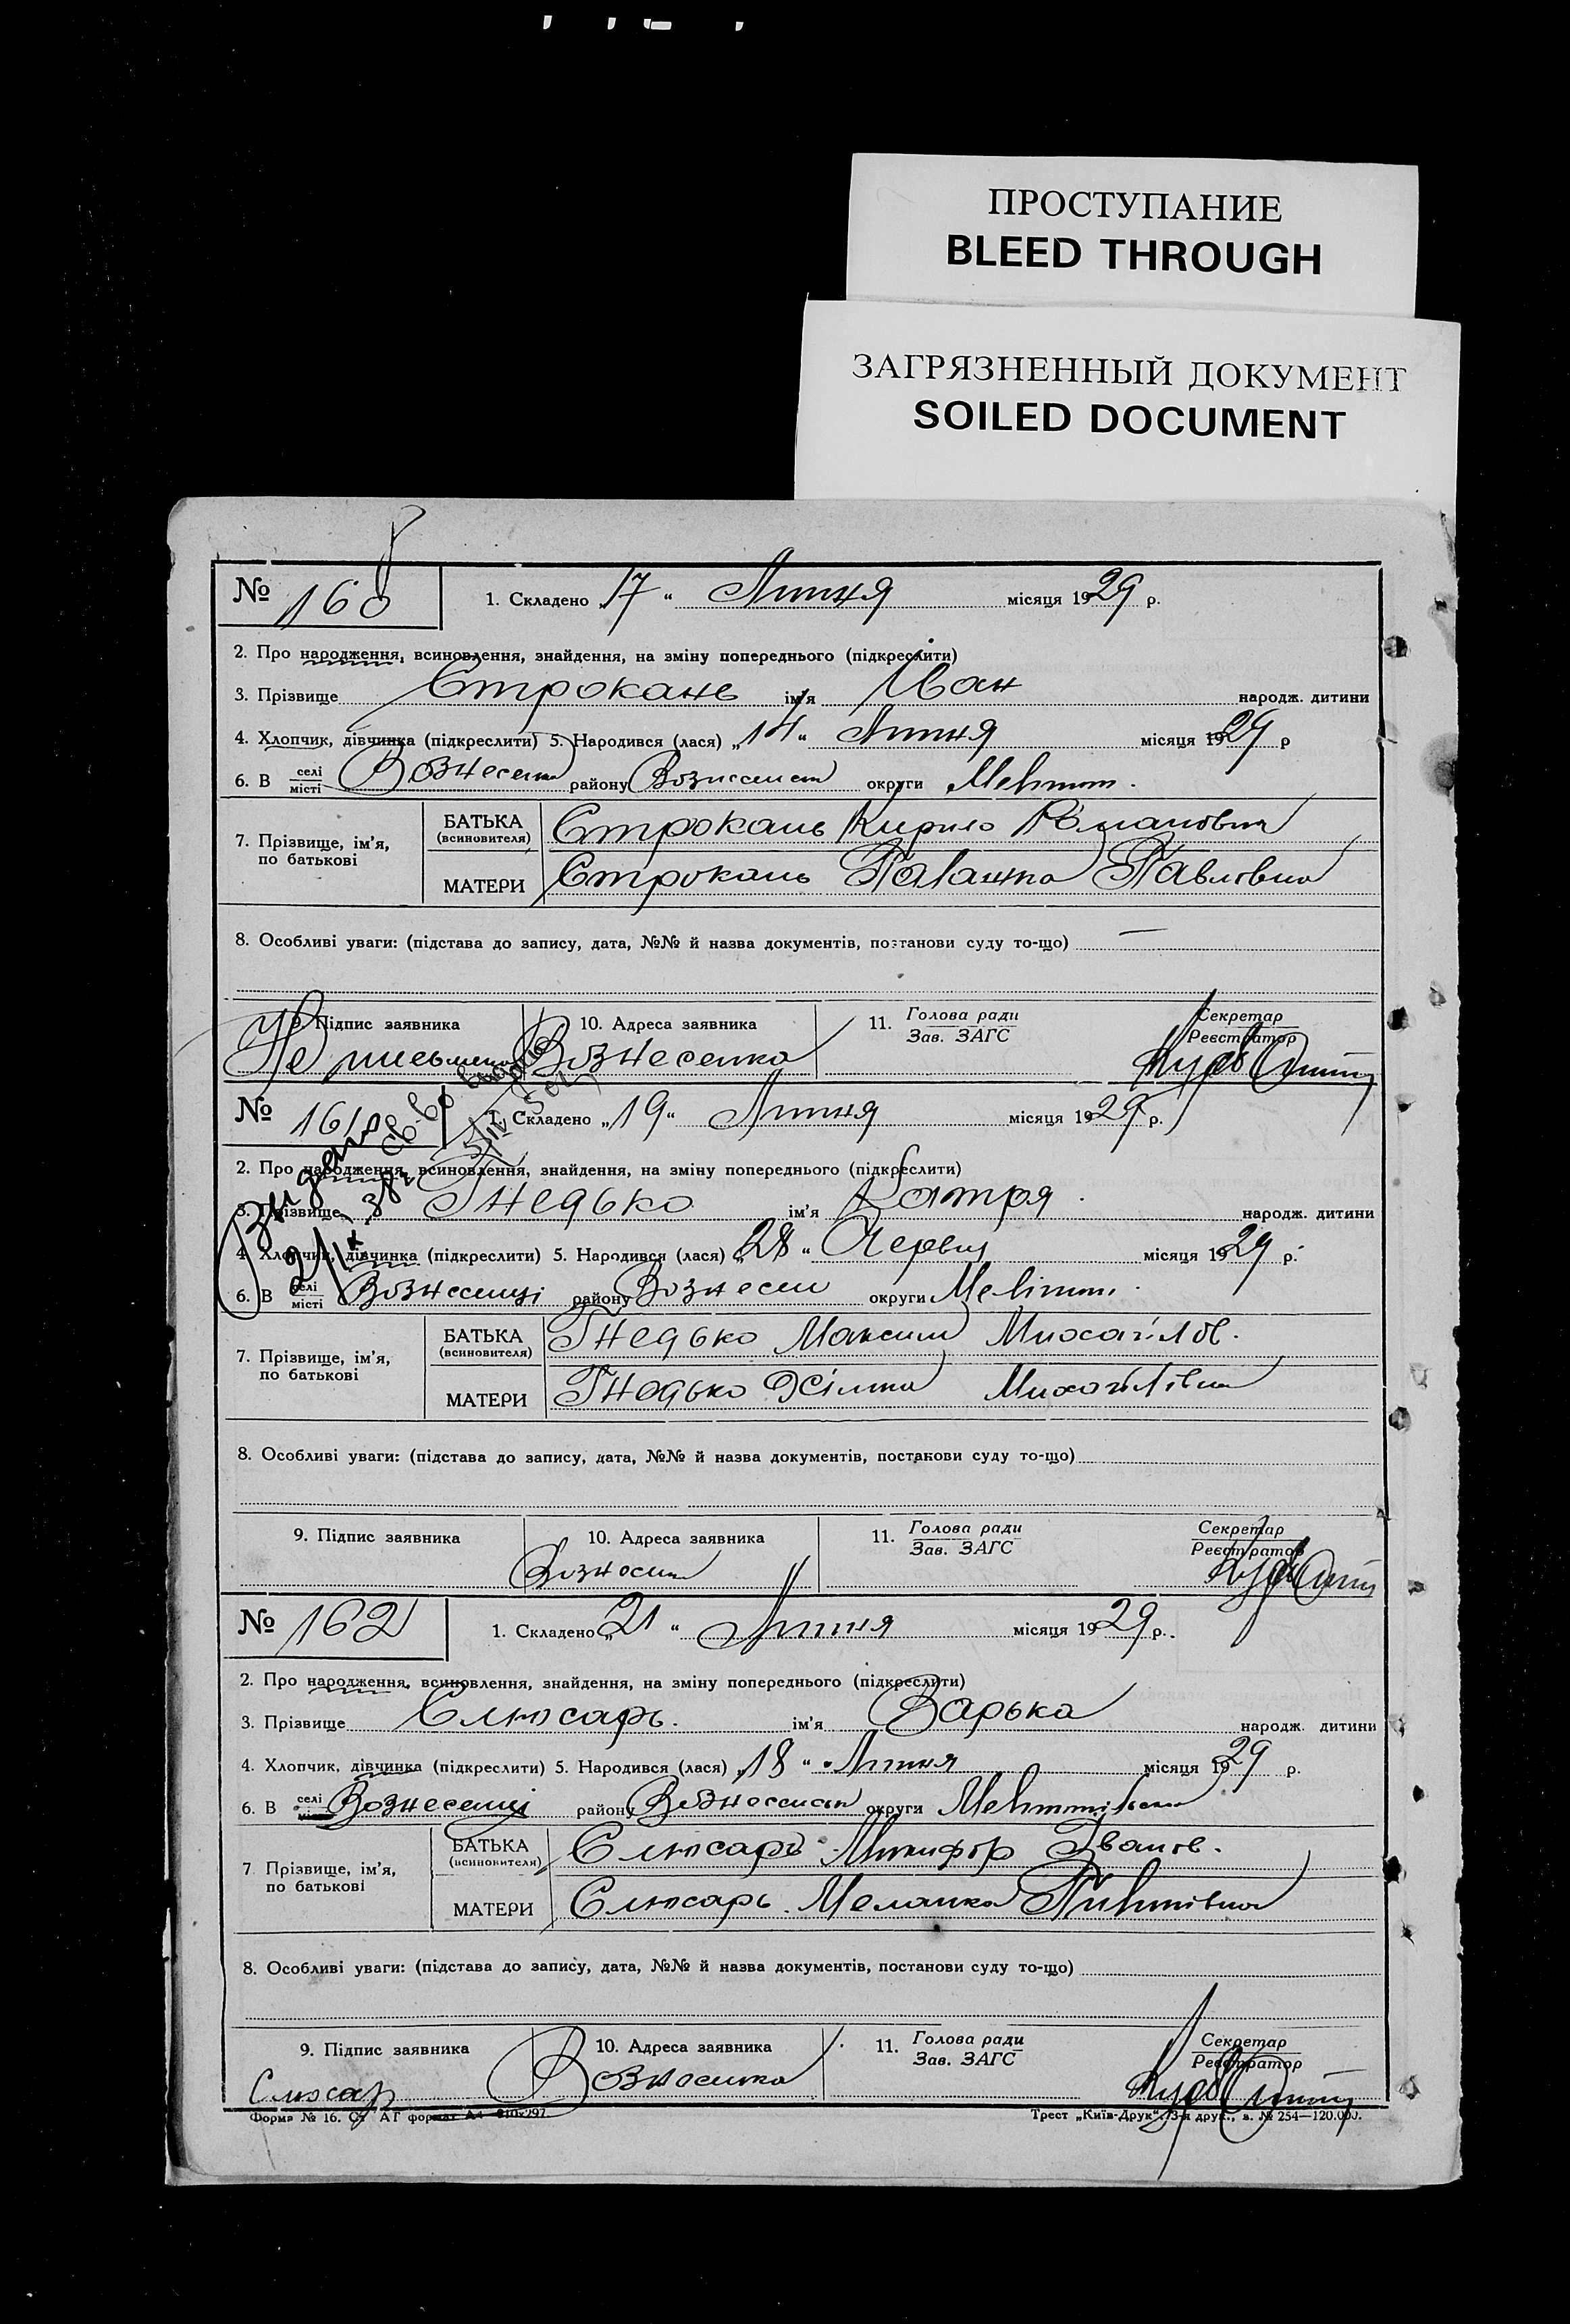 ПРОСТУПАНИЕ
BLEED THROUGH
ЗАГРЯЗНЕННЫЙ ДОКУМЕНТ
SOILED DOCUMENT
№ 160 1. Складено „17“ Липня місяця 1929 р.
2. Про народження, всиновлення, знайдення, на зміну попереднього (підкреслити)
3. Прізвище Строкань ім'я Іван народж. дитини
4. Хлопчик, дівчинка (підкреслити) 5. Народився (лася) „14“ Липня місяця 1929 р
6. В селі місті Вознесенка району округи Меліт.
7. Прізвище, ім'я, по батькові
БАТЬКА (всиновителя) Строкань Кирило Романович
МАТЕРИ Строкань Палажка Павловна
8. Особливі уваги: (підстава до запису, дата, №№ й назва документів, постанови суду то-що) —
9. Підпис заявника 10. Адреса заявника 11. Голова ради Зав. ЗАГС Секретар Реєстратор
Не письмен Вознесенка
№ 161 1. Складено „19“ Липня місяця 1929 р.
2. Про народження, всиновлення, знайдення, на зміну попереднього (підкреслити)
3. Прізвище Гнедько ім'я Катря народж. дитини
4. Хлопчик, дівчинка (підкреслити) 5. Народився (лася) „28“ Червня місяця 1929 р.
6. В селі місті Вознесенці району Вознесен округи Меліт.
7. Прізвище, ім'я, по батькові
БАТЬКА (всиновителя) Гнедько Максим Михайлов.
МАТЕРИ Гнедько Михайлівна
8. Особливі уваги: (підстава до запису, дата, №№ й назва документів, постанови суду то-що)
9. Підпис заявника 10. Адреса заявника 11. Голова ради Зав. ЗАГС Секретар Реєстратор
№ 162 1. Складено „21“ Липня місяця 1929 р.
2. Про народження, всиновлення, знайдення, на зміну попереднього (підкреслити)
3. Прізвище Слюсарь. ім'я Варька народж. дитини
4. Хлопчик, дівчинка (підкреслити) 5. Народився (лася) „18“ Липня місяця 1929 р.
6. В селі Вознесенці району округи
7 Прізвище, ім'я, по батькові
БАТЬКА (всиновителя) Слюсарь Микифор Іванов.
МАТЕРИ Слюсарь Меланка
8. Особливі уваги: (підстава до запису, дата, №№ й назва документів, постанови суду то-що)
9. Підпис заявника 10. Адреса заявника 11. Голова ради Зав. ЗАГС Секретар Реєстратор
Слюсар Вознесенка
Форма № 16. Ст АГ формат А4—210x297 Трест „Київ-Друк“. 3-я друк., з. № 254—120.000.